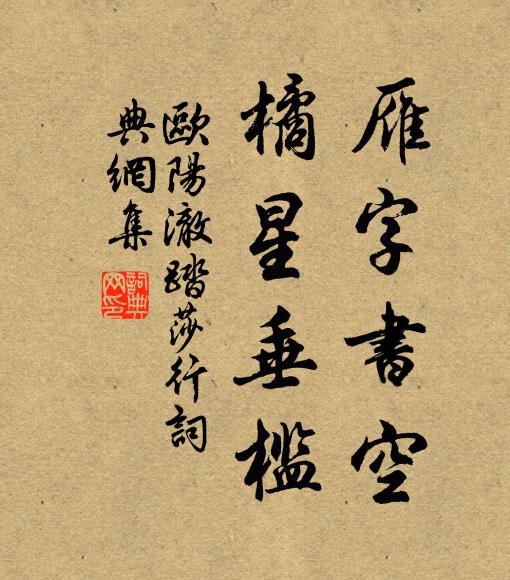 雁字書空
橘星垂檻
歐陽澈踏莎行詞
典網集
詞典
网印